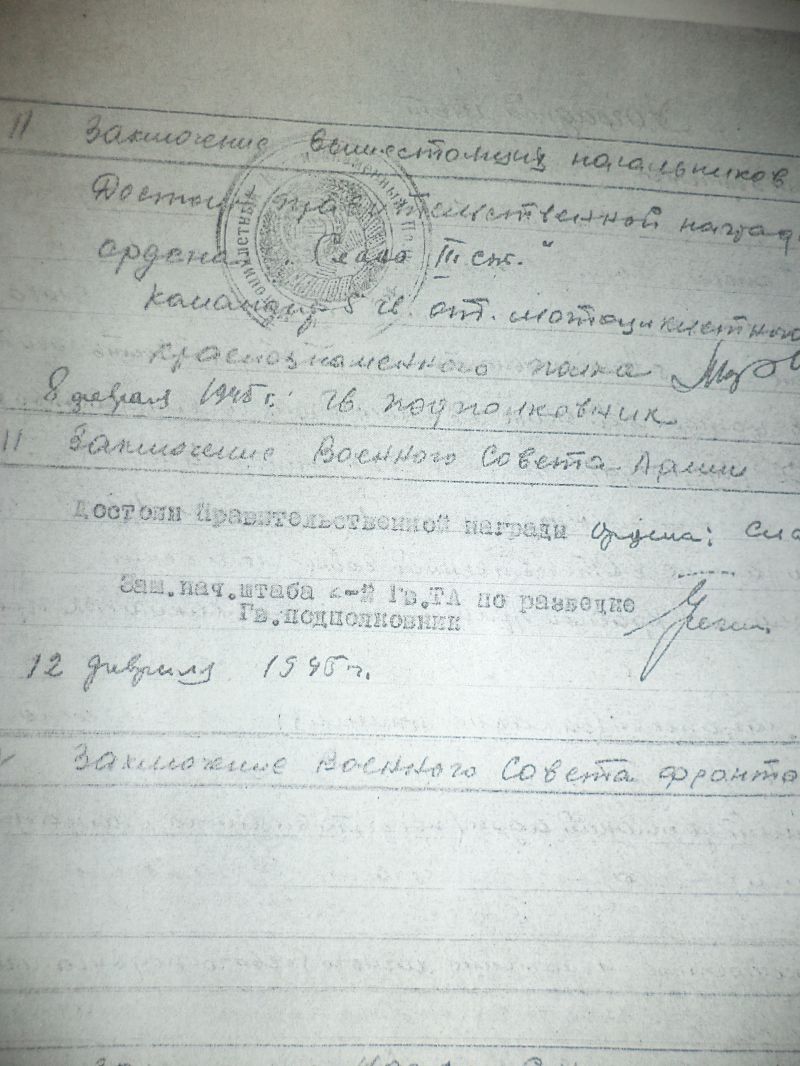 II Заключение вышестоящих начальников
Достоин правительственной награды
ордена „Слава III ст."
Командир 5 Гв. отд. мотоциклетного
Краснознаменного полка
8 февраля 1945 г. Гв. подполковник
II Заключение Военного Совета Армии
Достоин Правительственной награды ордена: Сла
Зам.нач.штаба 4-й Гв.ТА по разведке
Гв.подполковник
12 февраля 1945 г.
Заключение Военного Совета фронта